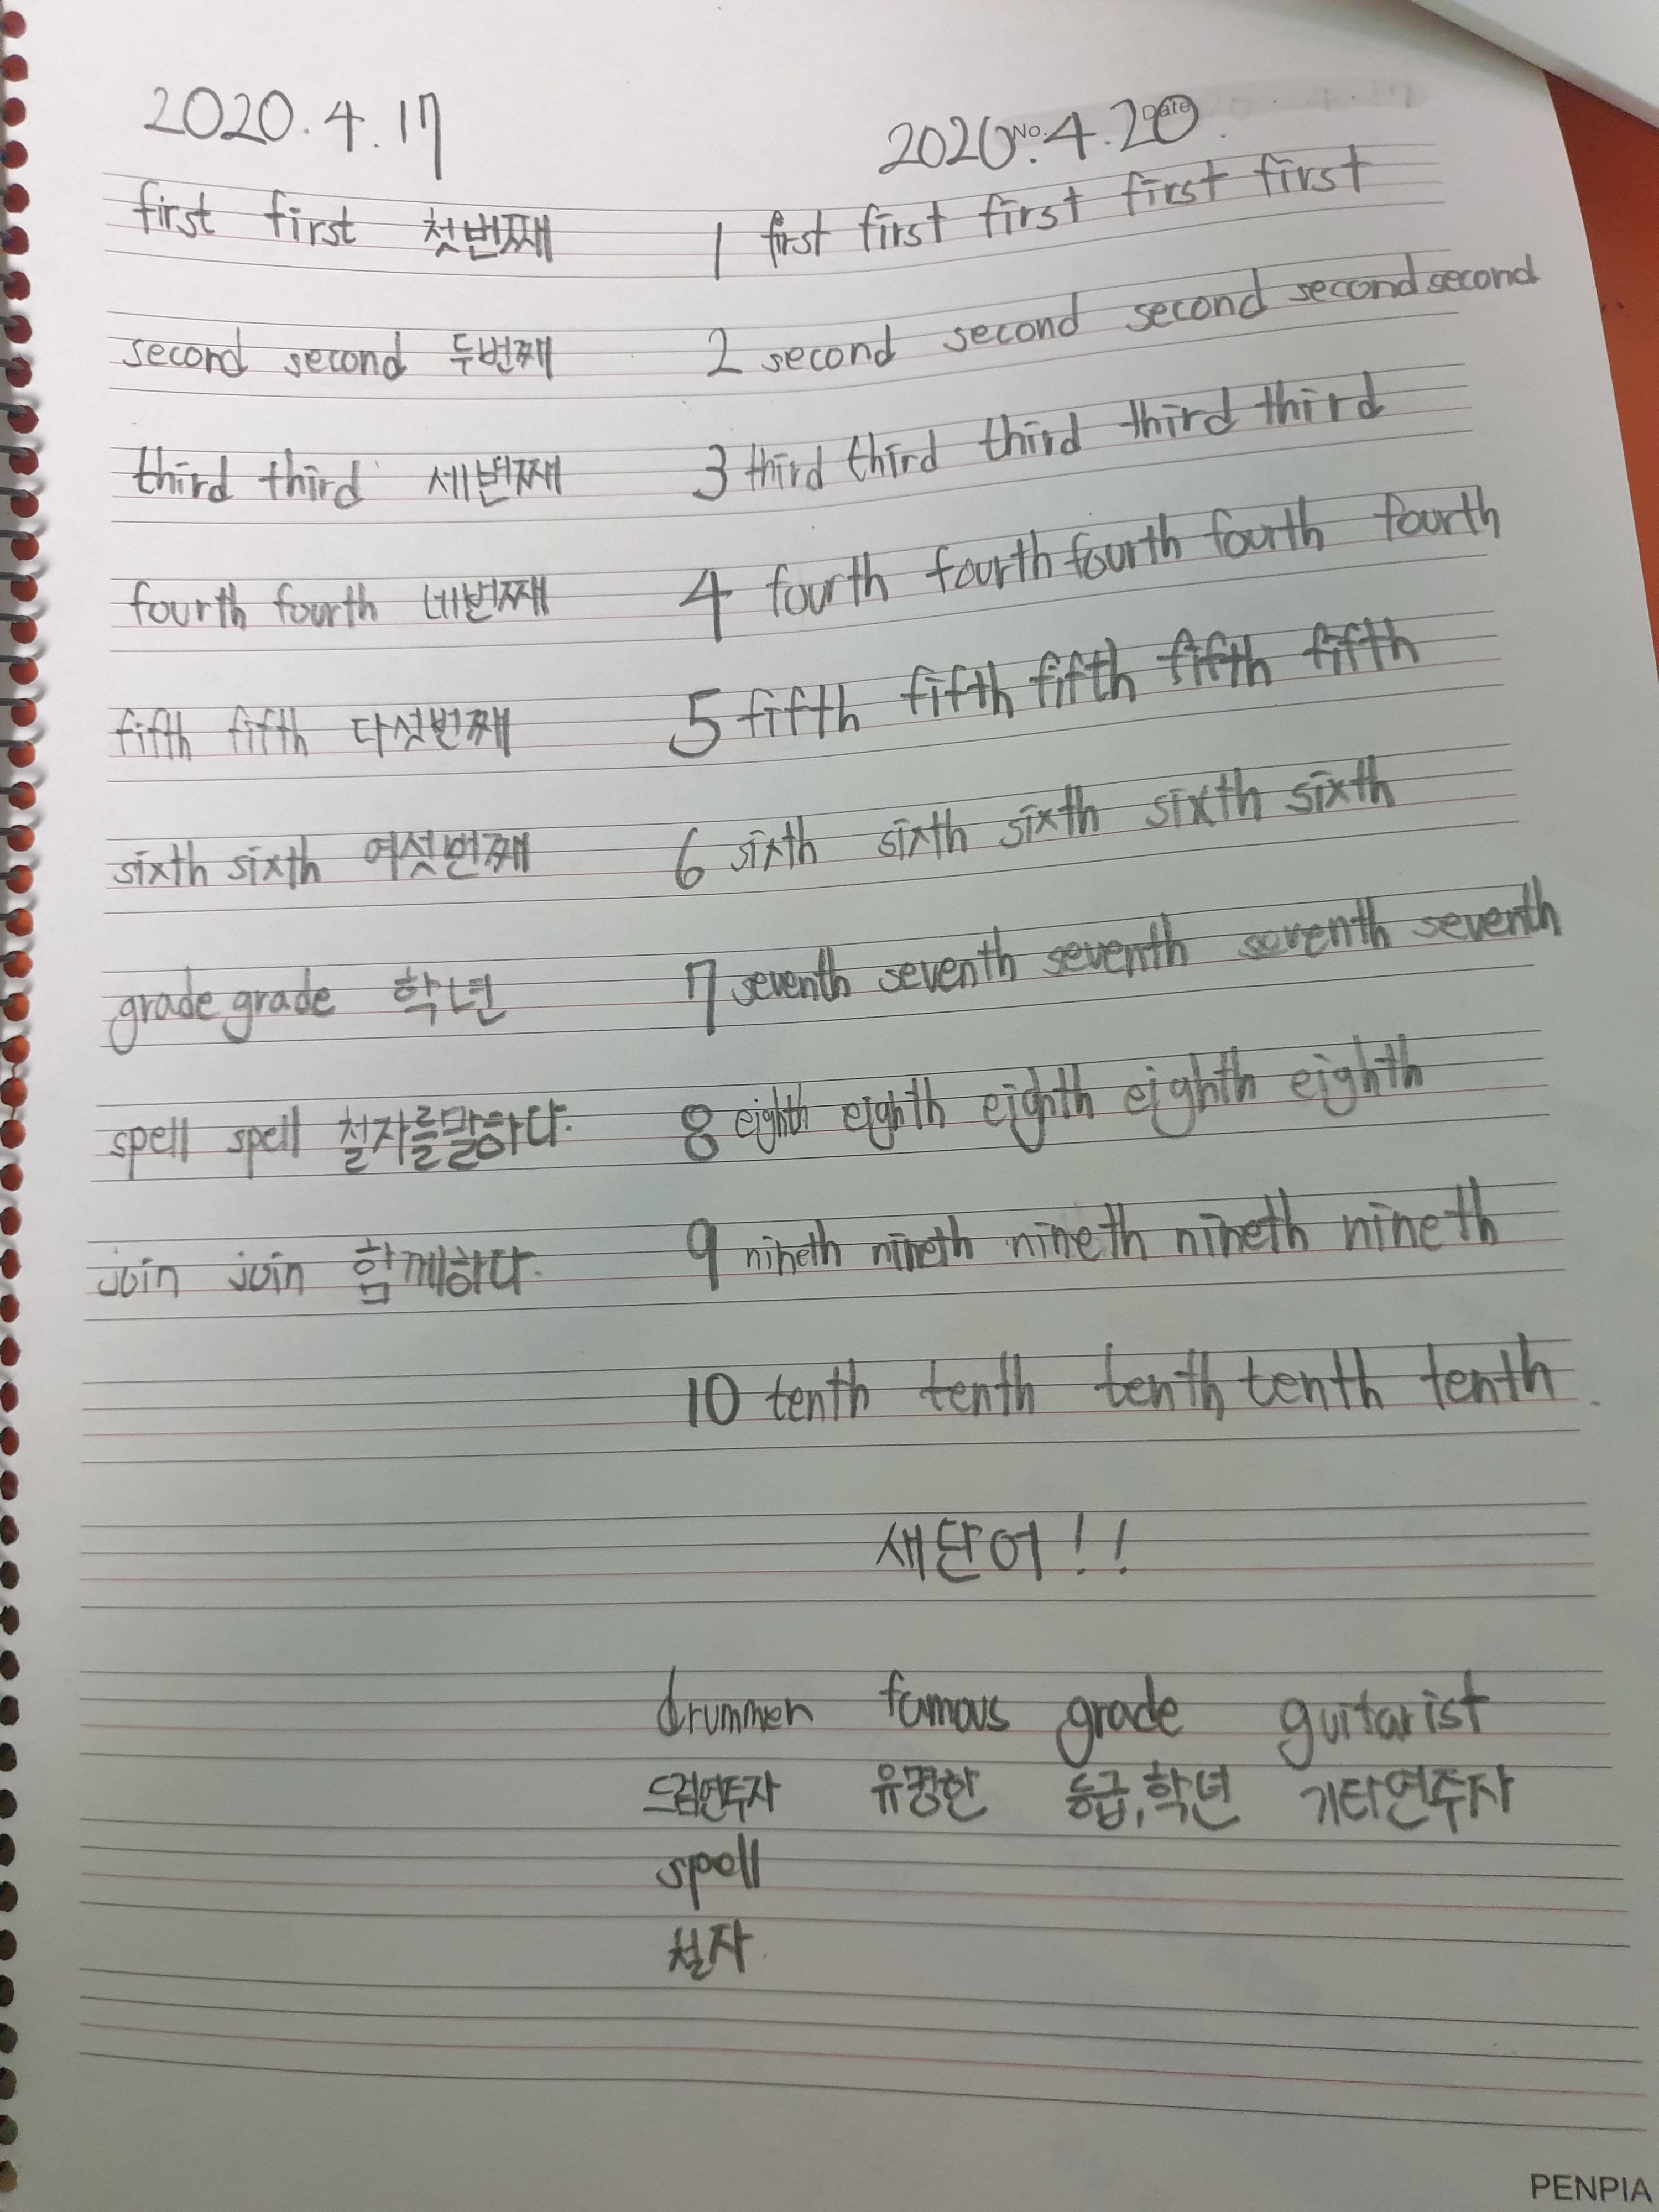 2020.4.17
first first 첫번째
second second 두번째
third third 세번째
fourth fourth 네번째
fifth fifth 다섯번째
sixth sixth 여섯번째
grade grade 학년
spell spell 철자를말하다.
join join 함께하다.
No. Date
2020.4.20.
1 first first first first first
2 second second second second second
3 third third third third third
4 fourth fourth fourth fourth fourth
5 fifth fifth fifth fifth fifth
6 sixth sixth sixth sixth sixth
7 seventh seventh seventh seventh seventh
8 eighth eighth eighth eighth eighth
9 nineth nineth nineth nineth nineth
10 tenth tenth tenth tenth tenth
새단어!!
drummen famous grade guitarist
드럼연주자 유명한 등급,학년 기타연주자
spell
철자
PENPIA